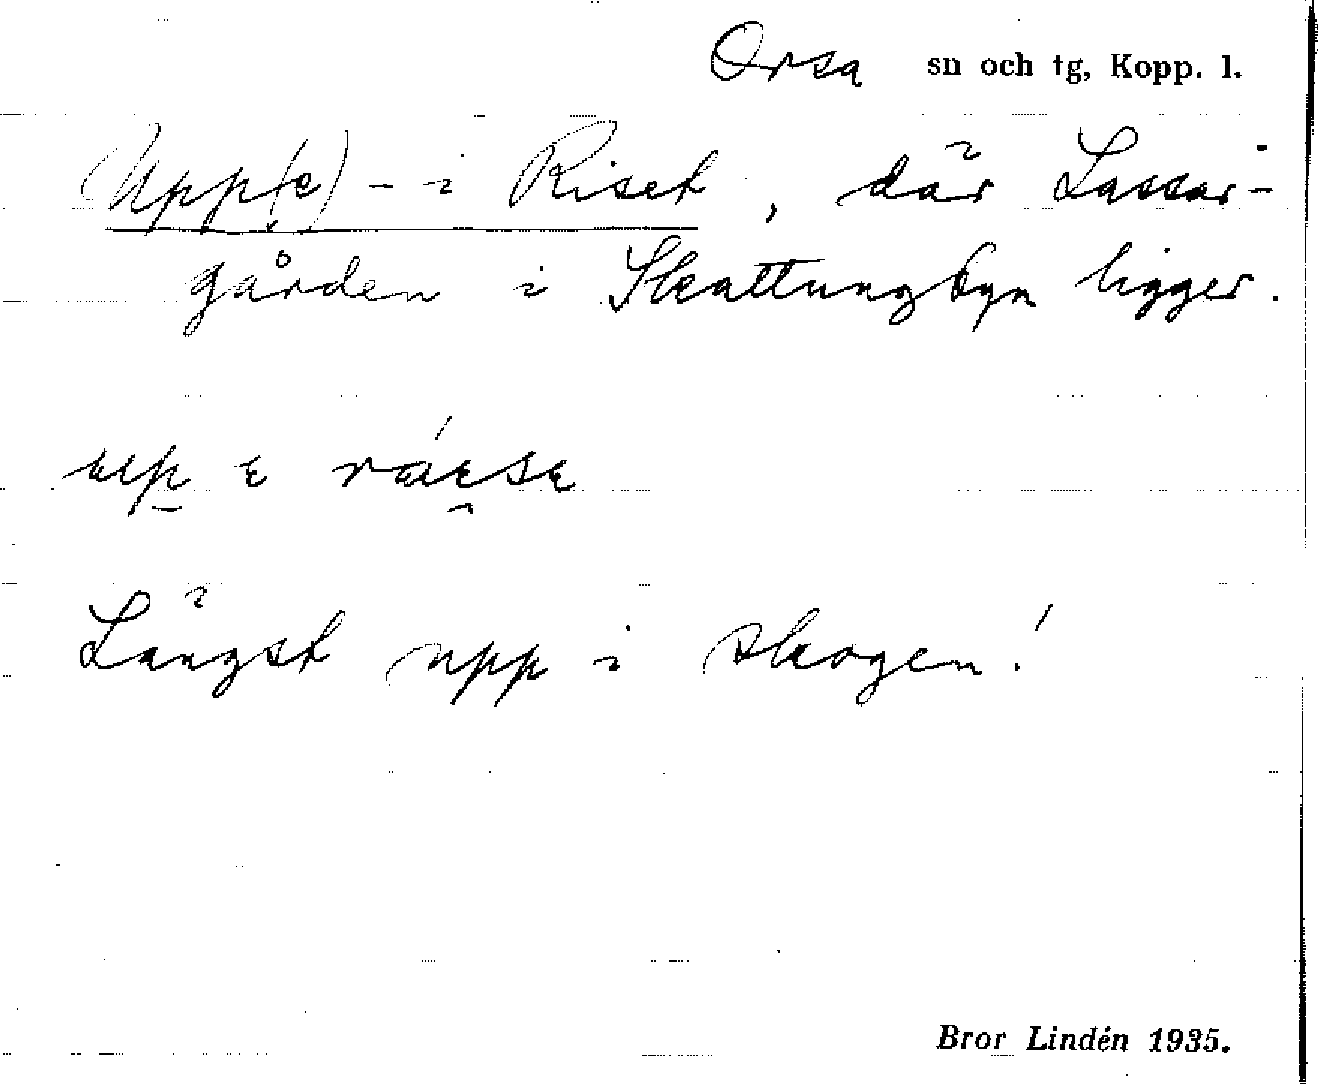 Orsa sn och tg, Kopp. l.
Upp(e) - i Riset, där Lassar-
gården i Skattungbyn ligger.
up ɛ
Längst upp i skogen!
Bror Lindén 1935.